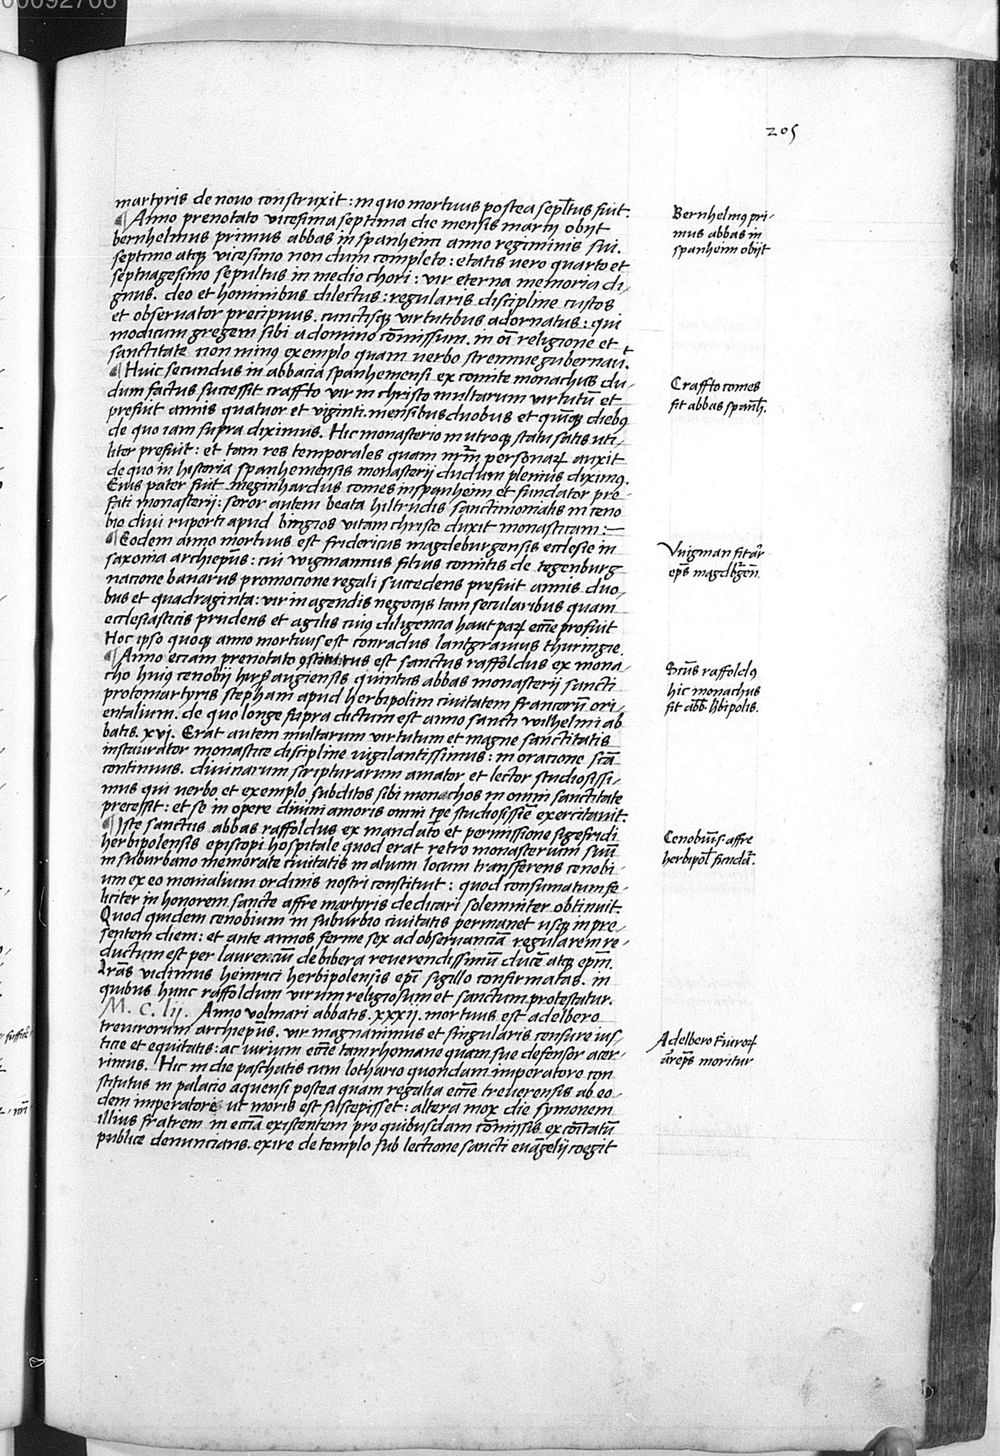 205
martyris de novo construxit : in quo mortuus postea sepl̄tus fuit.
¶ Anno prenotato vicesima septima die mensis martij obijt
bernhelmus primus abbas in spanheim anno regiminis sui.
septimo atq; vicesimo non dum completo : etatis vero quarto et
septuagesimo sepultus in medio chori : vir eterna memoria di-
gnus. deo et hominibus dilectus : regularis discipline custos
et observator precipuus. cunctisq; virtutibus adornatus : qui
modicum gregem sibi a domino cōmissum. in oī religione et
sanctitate non minus exemplo quam verbo strennue gubernauit.
¶ Huic secundus in abbacia spanhemensi ex comite monachus du-
dum factus successit craffto vir in christo multarum virtutū et
prefuit annis quatuor et viginti. mensibus duobus et quīq; diebus
de quo iam supra diximus. Hic monasterio in utroq; statu satis uti-
liter prefuit : et tam res temporales quam nrm̄ personarꝝ auxit
de quo in historia spanhemensis monasterij dudum plenius diximus.
Eius pater fuit meginhardus comes in spanheim et fundator pre-
fati monasterij : soror autem beata hiltrudis sanctimonialis in ceno
bio divi ruperti apud bingios vitam christo duxit monasticam :—
¶ Eodem anno mortuus est fridericus magdeburgensis ecclesie in
saxonia archiep̄us : cui wigmannus filius comitis de tegenburg
nacione bavarus promocione regali succedens prefuit annis duo-
bus et quadraginta : vir in agendis negocijs tam secularibus quam
ecclesiasticis prudens et agilis cuius diligencia haut parꝝ eccīe profuit
Hoc ipso quoq; anno mortuus est conradus lantgravius thuringie.
¶ Anno eciam prenotato ꝯstitutus est sanctus raffoldus ex mona-
cho huius cenobij hirsaugiensis quintus abbas monasterij sancti
protomartyris stephani apud herbipolim civitatem francorū ori-
entalium. de quo longe supra dictum est anno sancti wilhelmi ab
batis. xvj. Erat autem multarum virtutum et magne sanctitatis
instaurator monastice discipline vigilantissimus : in oracione scā
continuus. divinarum scripturarum amator et lector studiosissi-
mus qui verbo et exemplo subditos sibi monachos in omni sanctitate
precessit : et se in opere divini amoris omni tp̄e studiosissie exercitavit.
¶ Iste sanctus abbas raffoldus ex mandato et permissione sigefridi
herbipolensis episcopi hospitale quod erat retro monasterium suū
in suburbano memorate civitatis in alium locum transferens cenobi-
um ex eo monialium ordinis nostri constituit : quod consumatum fe-
liciter in honorem sancte affre martyris dedicari solemniter obtinuit.
Quod quidem cenobium in suburbio civitatis permanet usq; in pre-
sentem diem : et ante annos ferme sex ad observanciā regularem re-
ductum est per laurenciū de bibera reverendissimū ducē atq; epm̄.
lrās vidimus heinrici herbipolensis ep̄i sigillo confirmatas. in
quibus hunc raffoldum virum religiosum et sanctum protestatur.
M. C. lij. Anno volmari abbatis. xxxij. mortuus est adelbero
trevirorum archiep̄us. vir magnanimus et singularis censure ius-
ticie et equitatis : ac iurium eccīe tam rhomane quam sue defensor acer-
rimus. Hic in die paschatis cum lothario quondam imperatore con
stitutus in palacio aquensi postea quam regalia eccīe treverensis ab eo-
dem imperatore ut moris est suscepisset : altera mox die symonem
illius fratrem in eccīa existentem pro quibusdam cōmissis excōicatū
publice denuncians. exire de templo sub lectione sancti evāgelij coegit
Bernhelmus pri-
mus abbas in
spanheim obijt
Craffto comes
fit abbas spanh̄.
Wigman fit ar
ep̄s magdb̄gēn.
Scūs raffoldus
hic monachus
fit abb̄ hb̄ipolis.
Cenobiūs. affre
herbipol̄ fundat̄.
Adelbero t̄viroꝝ
ar̄ep̄s moritur